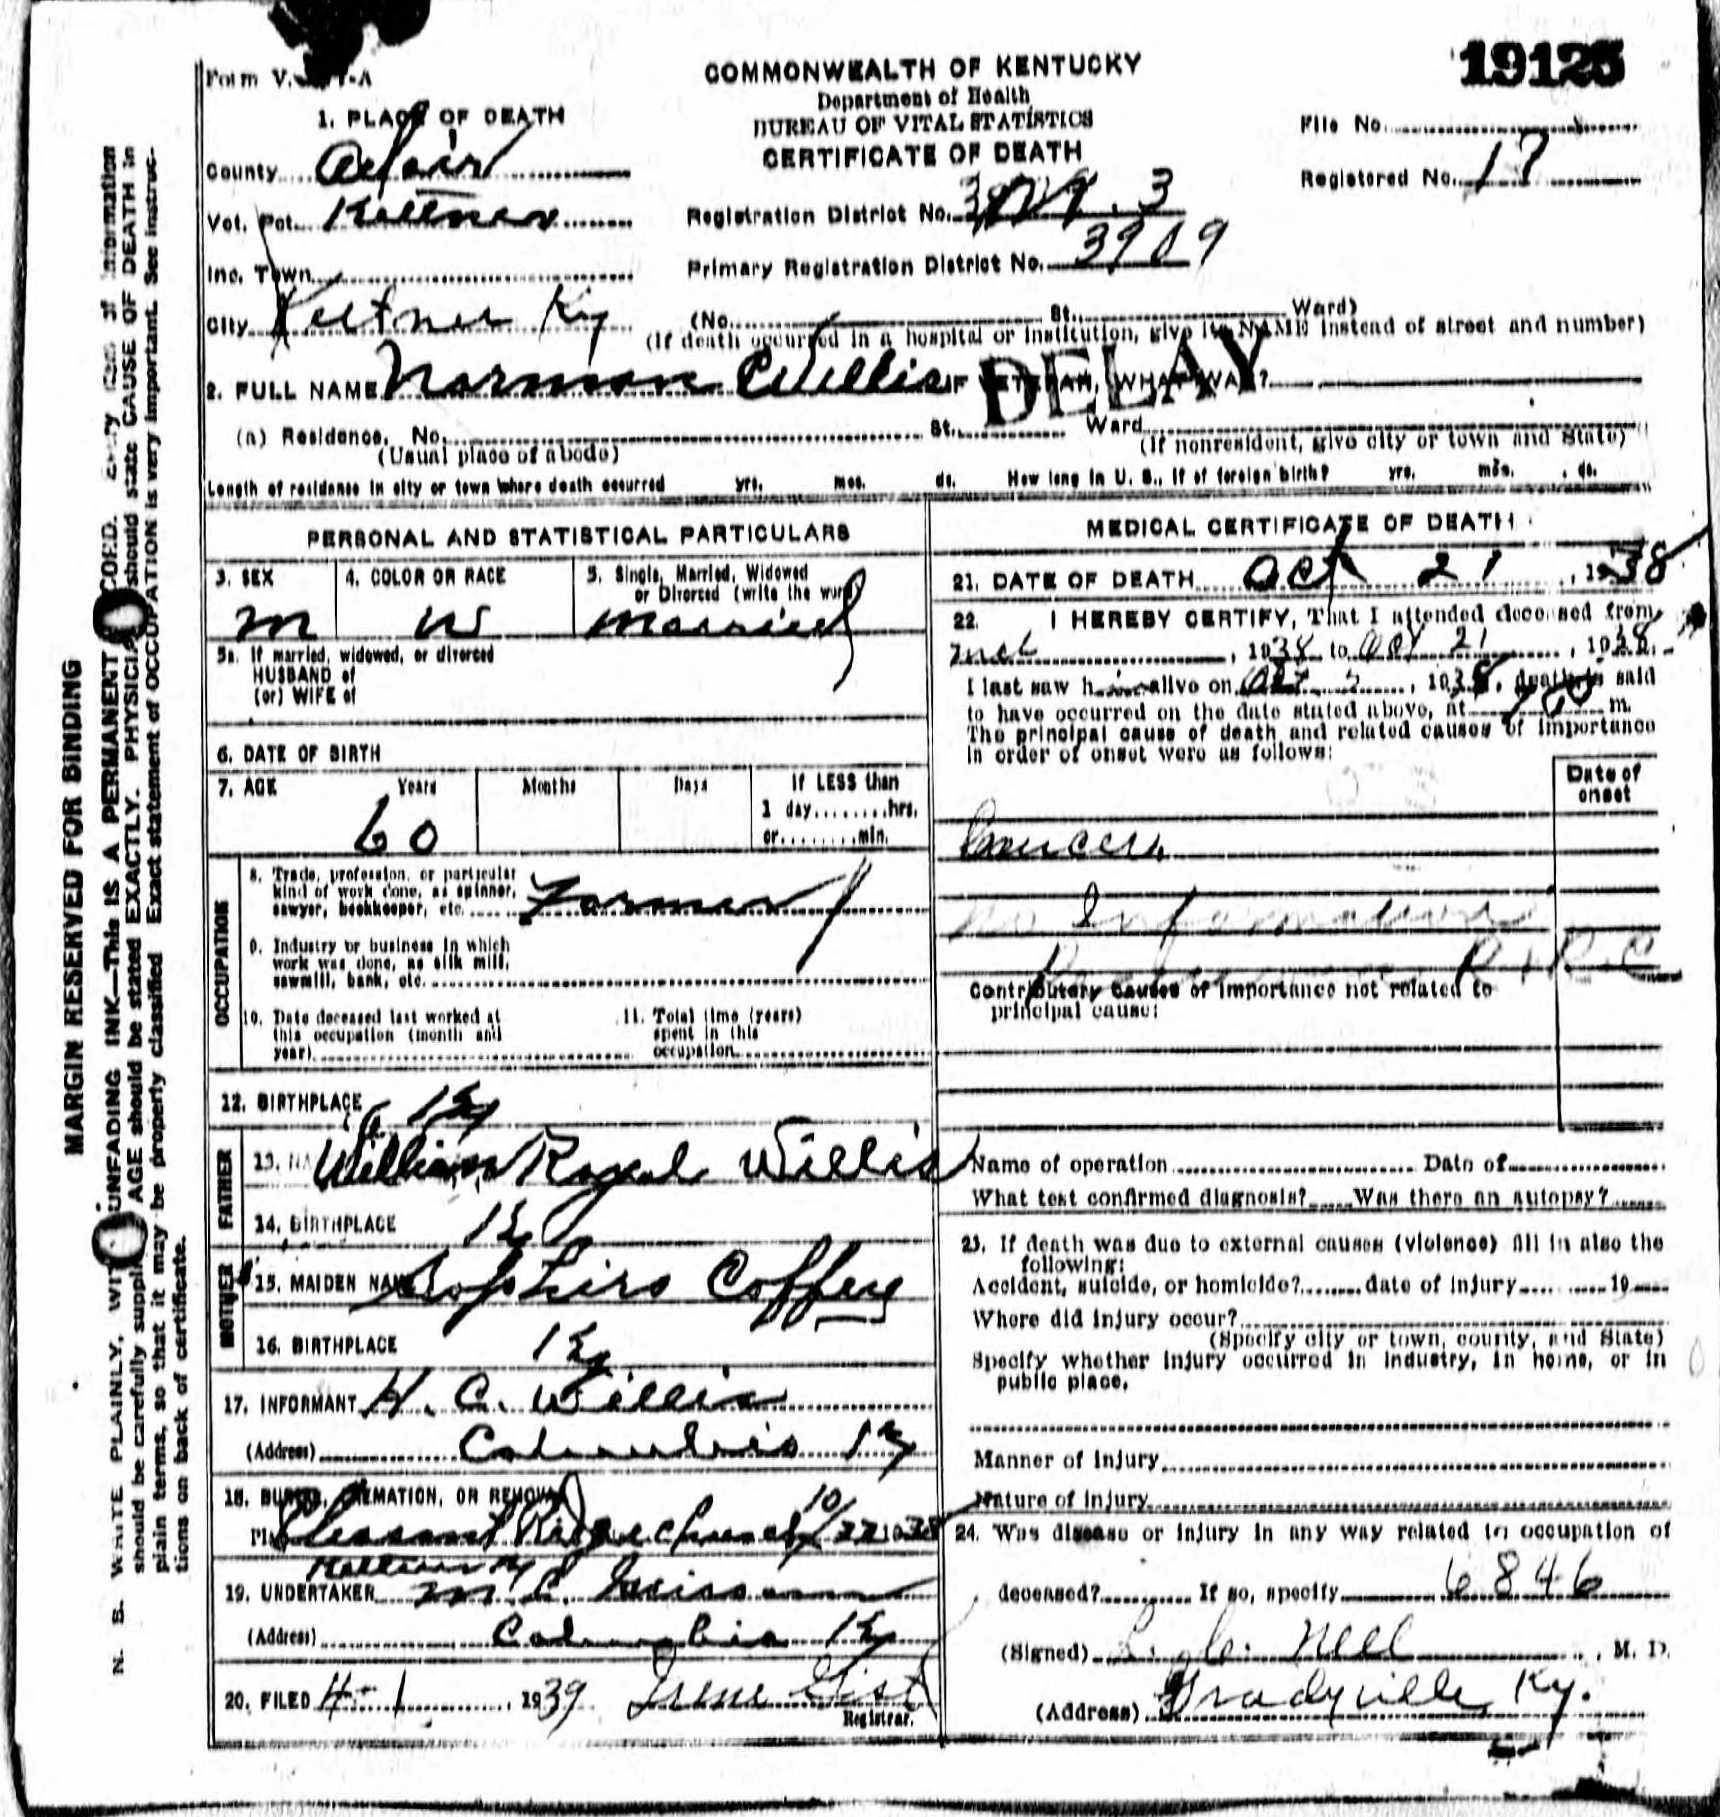 19125
Form V.   -A
COMMONWEALTH OF KENTUCKY
Department of Health
BUREAU OF VITAL STATISTICS
CERTIFICATE OF DEATH
File No.
Registered No. 17
1. PLACE OF DEATH
County Adair
Vot. Pct. Keltner
Inc. Town
City Keltner Ky
Registration District No. 3
Primary Registration District No. 3909
(No. St., Ward)
(If death occurred in a hospital or institution, give its NAME instead of street and number)
2. FULL NAME Norman Willis IF VETERAN, WHAT WAR?
DELAY
(a) Residence. No. St., Ward
(Usual place of abode) (If nonresident, give city or town and State)
Length of residence in city or town where death occurred yrs. mos. ds. How long in U. S., if of foreign birth? yrs. mos. ds.
PERSONAL AND STATISTICAL PARTICULARS
3. SEX 4. COLOR OR RACE 5. Single, Married, Widowed
or Divorced (write the word)
M W Married
5a. If married, widowed, or divorced
HUSBAND of
(or) WIFE of
6. DATE OF BIRTH
7. AGE Years Months Days If LESS than
1 day........hrs.
or........min.
60
OCCUPATION
8. Trade, profession, or particular
kind of work done, as spinner,
sawyer, bookkeeper, etc. Farmer
9. Industry or business in which
work was done, as silk mill,
sawmill, bank, etc.
10. Date deceased last worked at
this occupation (month and
year)
11. Total time (years)
spent in this
occupation
12. BIRTHPLACE Ky
FATHER
13. William Royal Willis
14. BIRTHPLACE Ky
MOTHER
15. MAIDEN NAME Coffey
16. BIRTHPLACE Ky
17. INFORMANT H. C. Willis
(Address) Columbia Ky
18. BURIAL, CREMATION, OR REMOVAL
Pleasant Ridge Church 10/22 1938
19. UNDERTAKER M. C.
(Address) Columbia Ky
20. FILED 4-1, 1939 Irene Gist
Registrar.
MEDICAL CERTIFICATE OF DEATH
21. DATE OF DEATH Oct 21, 1938
22. I HEREBY CERTIFY, That I attended deceased from
, 1938 to Oct 21, 1938.
I last saw him alive on Oct, 1938, death is said
to have occurred on the date stated above, at m.
The principal cause of death and related causes of importance
in order of onset were as follows:
Date of
onset
Cancer
No Information
Contributory causes of importance not related to
principal cause:
Name of operation Date of
What test confirmed diagnosis? Was there an autopsy?
23. If death was due to external causes (violence) fill in also the
following:
Accident, suicide, or homicide? date of injury 19
Where did injury occur?
(Specify city or town, county, and State)
Specify whether injury occurred in industry, in home, or in
public place.
Manner of injury
Nature of injury
24. Was disease or injury in any way related to occupation of
deceased? If so, specify 6846
(Signed) Nell, M. D.
(Address) Gradyville Ky.
MARGIN RESERVED FOR BINDING
N. B. WRITE PLAINLY, WITH UNFADING INK—THIS IS A PERMANENT RECORD. Every item of information
should be carefully supplied. AGE should be stated EXACTLY. PHYSICIANS should state CAUSE OF DEATH in
plain terms, so that it may be properly classified. Exact statement of OCCUPATION is very important. See instruc-
tions on back of certificate.